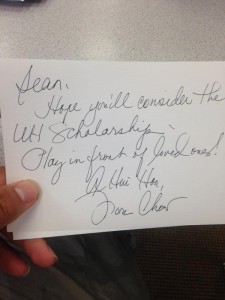 Sean,
Hope you'll consider the
UH Scholarship.
Play in front of loved ones!
A Hui Hou,
Chow